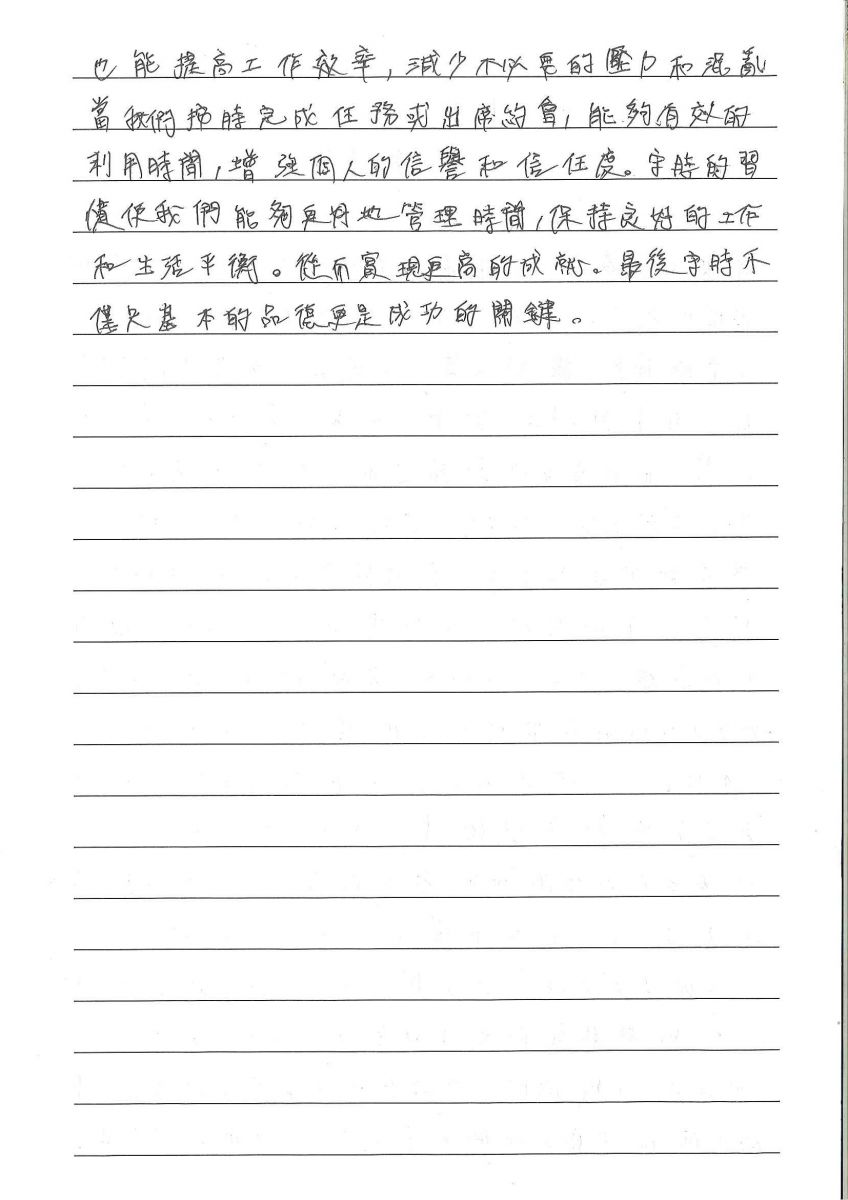 也能提高工作效率，減少不必要的壓力和混亂
當我們按時完成任務或出席約會，能夠有效的
利用時間，增強個人的信譽和信任度。守時的習
慣使我們能夠更好地管理時間，保持良好的工作
和生活平衡。從而實現更高的成就。最後守時不
僅只基本的品德更是成功的關鍵。